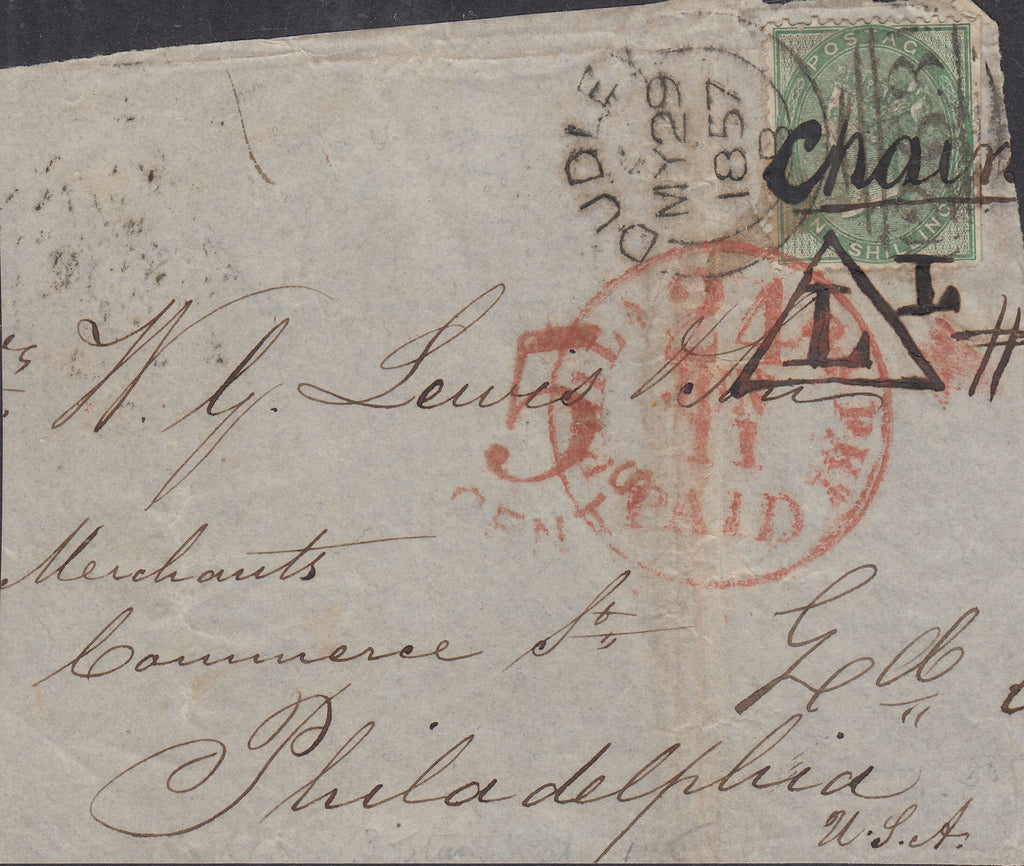 POSTAGE
ONE SHILLING
DUDLEY
MY 29
1857
B
Chain
L
L
24
11
PAID
PKT
5
CENTS
W. G. Lewis & Son
Merchants
Commerce St
Philadelphia
U.S.A.